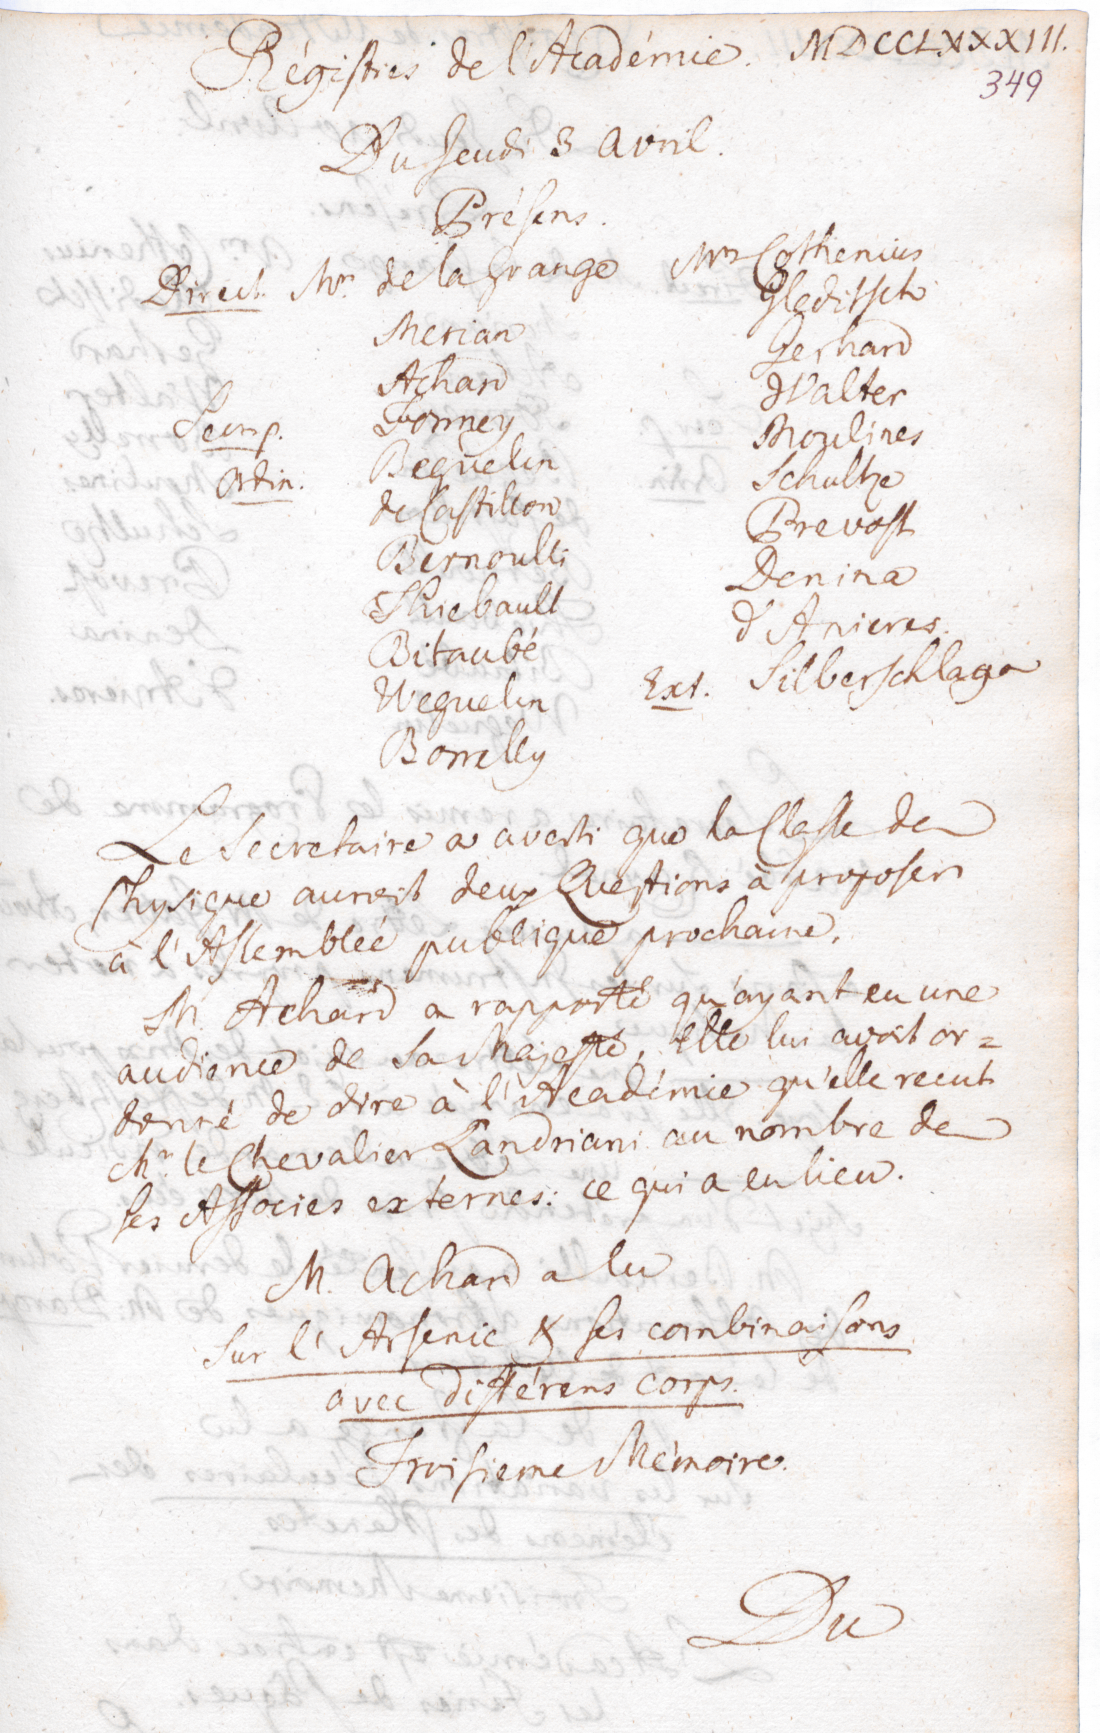 Régistres de l'Académie. MDCCLXXXIII.
349
Du Jeudi 3 Avril.
Présens.
Direct. Mrs. de la Grange
Merian
Achard
Secr. p. Formey
Ordin. Beguelin
de Castillon
Bernoulli
Thiebault
Bitaubé
Weguelin
Borrelly
Mrs Cothenius
Gleditsch
Gerhard
Walter
Moulines
Schultze
Prevost
Denina
d'Anieres.
Ext. Silberschlag
Le Secretaire a averti que la Classe de
Physique auroit deux Questions à proposer
à l'Assemblée publique prochaine.
M. Achard a rapporté qu'ayant eu une
audience de Sa Majesté, Elle lui avoit or=
donné de dire à l'Académie qu'elle recut
Mr le Chevalier Landriani au nombre de
ses Associes externes: ce qui a eu lieu.
M. Achard a lu
Sur l'Arsenic & ses combinaisons
avec différens corps.
Troisieme Mémoire.
Du